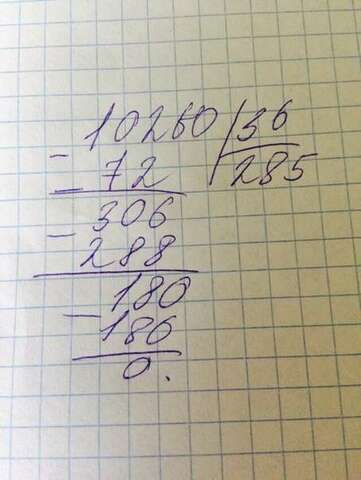 10260 36
- 72 285
306
- 288
180
- 180
0.